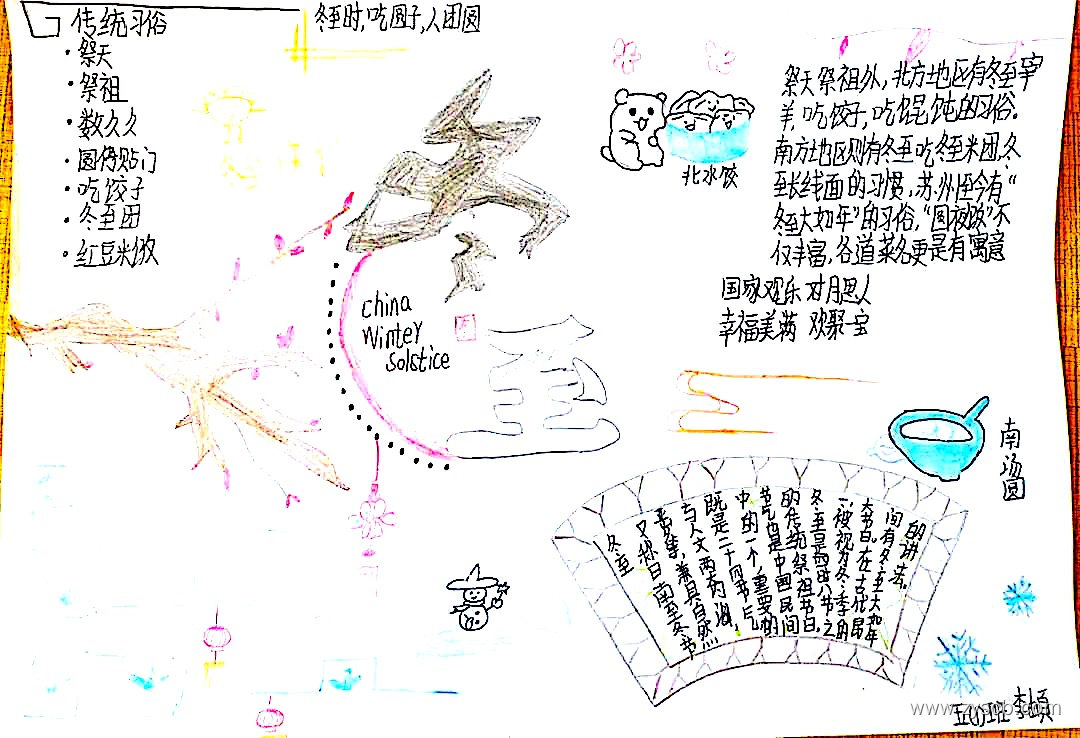 传统习俗
·祭天
·祭祖
·数九久
·圆侍贴门
·吃饺子
·冬至团
·红豆米饭
冬至时,吃圆子,人团圆
祭天祭祖外,北方地区有冬至宰
羊,吃饺子,吃馄饨的习俗.
南方地区则有冬至吃冬至米团,冬
至长线面的习惯,苏州至今有“
冬至大如年”的习俗,“圆夜饭”不
仅丰富,各道菜名更是有寓意
国家观乐对月思人
幸福美满 欢聚一宝
北水饺
冬
至
china
Winter
solstice
南汤圆
冬至
又称日南至、冬节
贵集,兼具自然
与人文两大内涵,
既是二十四节气
中的一个重要的
节气也是中国民间
的传统祭祖节日,
冬至是四时八节之
一被视为冬季的
大节日,在古代民
间有冬至大如年
的讲法.
班 李頔
www.zyspb.com